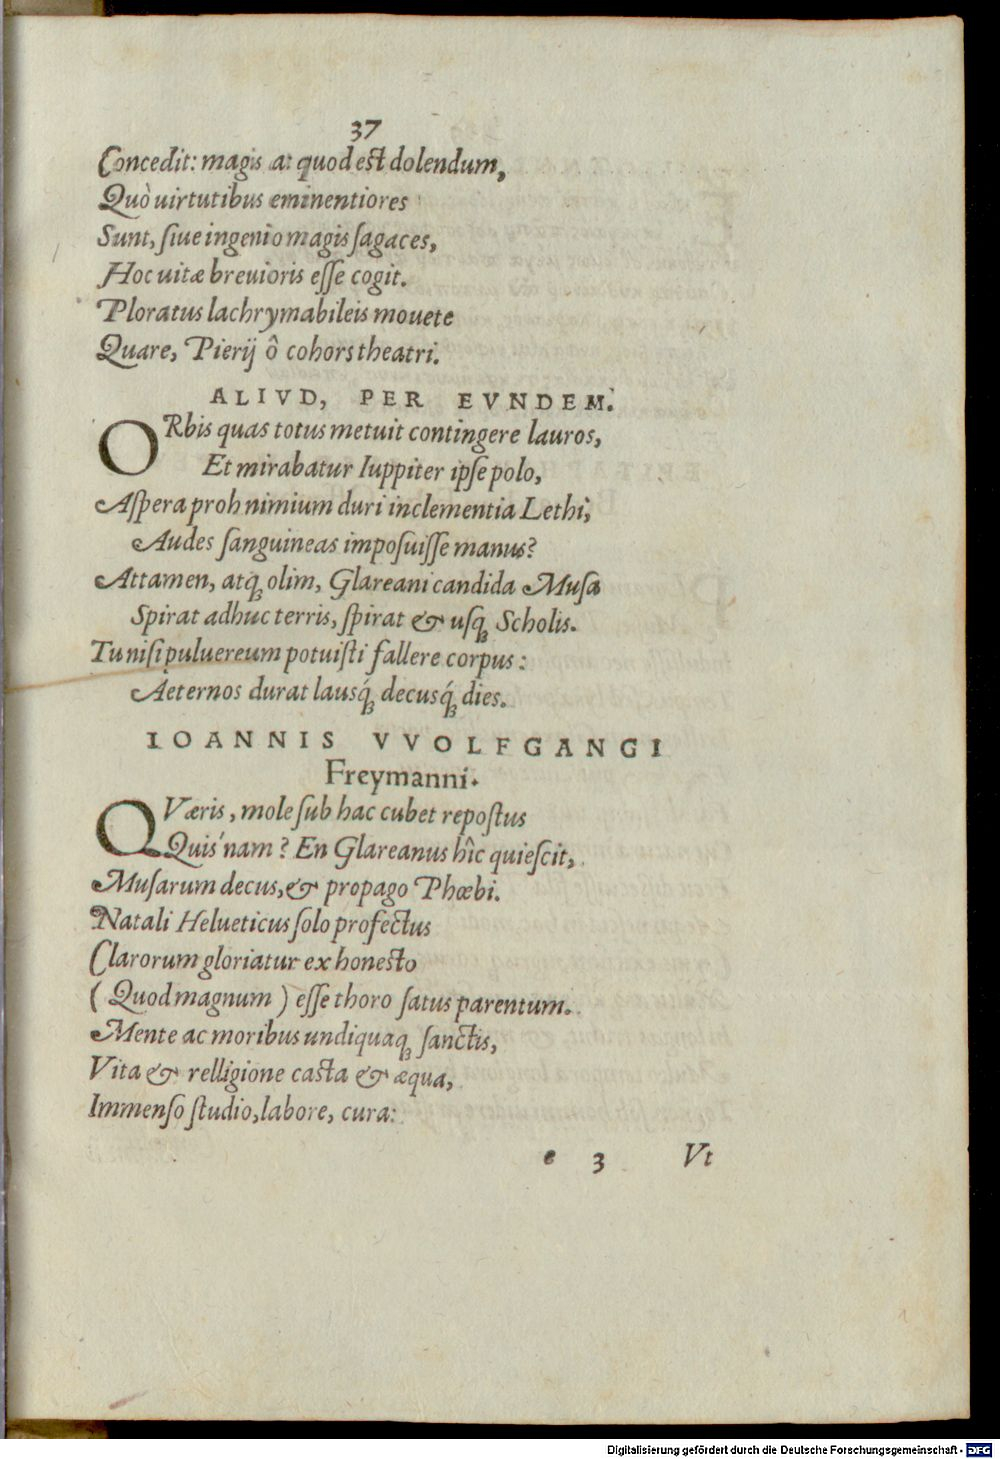 37
Concedit: magis a: quod est dolendum,
Quò uirtutibus eminentiores
Sunt, siue ingenio magis sagaces,
Hoc uitæ breuioris esse cogit.
Ploratus lachrymabileis mouete
Quare, Pierij ô cohors theatri.
ALIVD, PER EVNDEM.
ORbis quas totus metuit contingere lauros,
Et mirabatur Iuppiter ipse polo,
Aspera proh nimium duri inclementia Lethi,
Audes sanguineas imposuisse manus?
Attamen, atq; olim, Glareani candida Musa
Spirat adhuc terris, spirat & usq; Scholis.
Tu nisi puluereum potuisti fallere corpus:
Aeternos durat lausq́; decusq́; dies.
IOANNIS VVOLFGANGI
Freymanni.
QVæris, mole sub hac cubet repostus
Quis'nam? En Glareanus hîc quiescit,
Musarum decus, & propago Phœbi.
Natali Helueticus solo profectus
Clarorum gloriatur ex honesto
(Quod magnum) esse thoro satus parentum.
Mente ac moribus undiquaq; sanctis,
Vita & relligione casta & æqua,
Immenso studio, labore, cura:
e 3 Vt
Digitalisierung gefördert durch die Deutsche Forschungsgemeinschaft - DFG